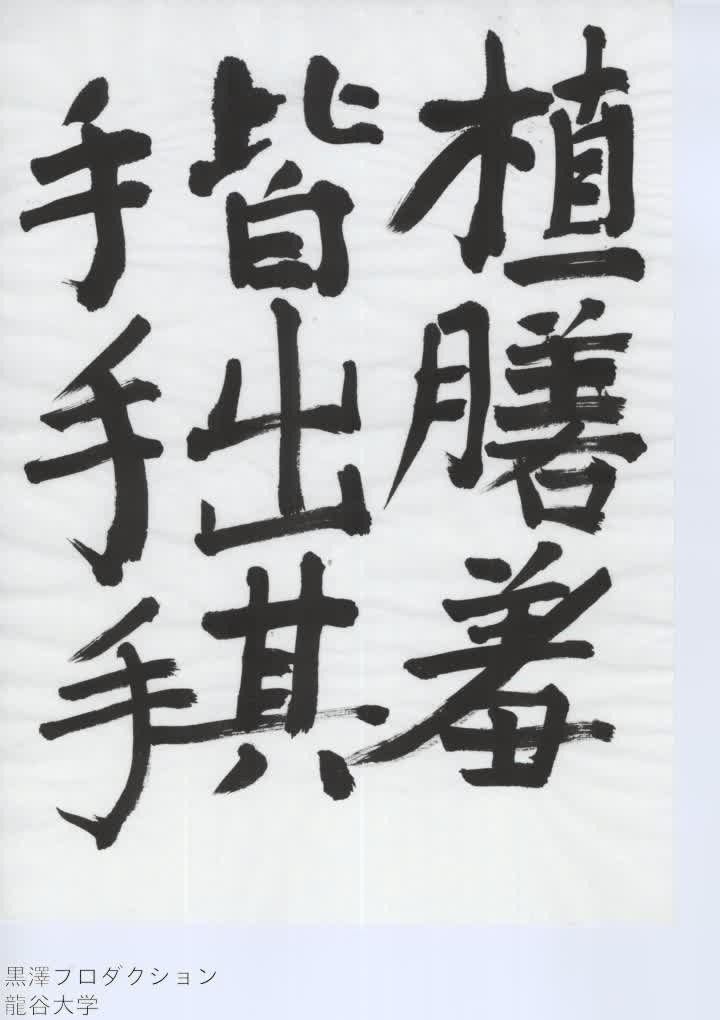 植膳羞
皆出其
手手手
黒澤プロダクション
龍谷大学